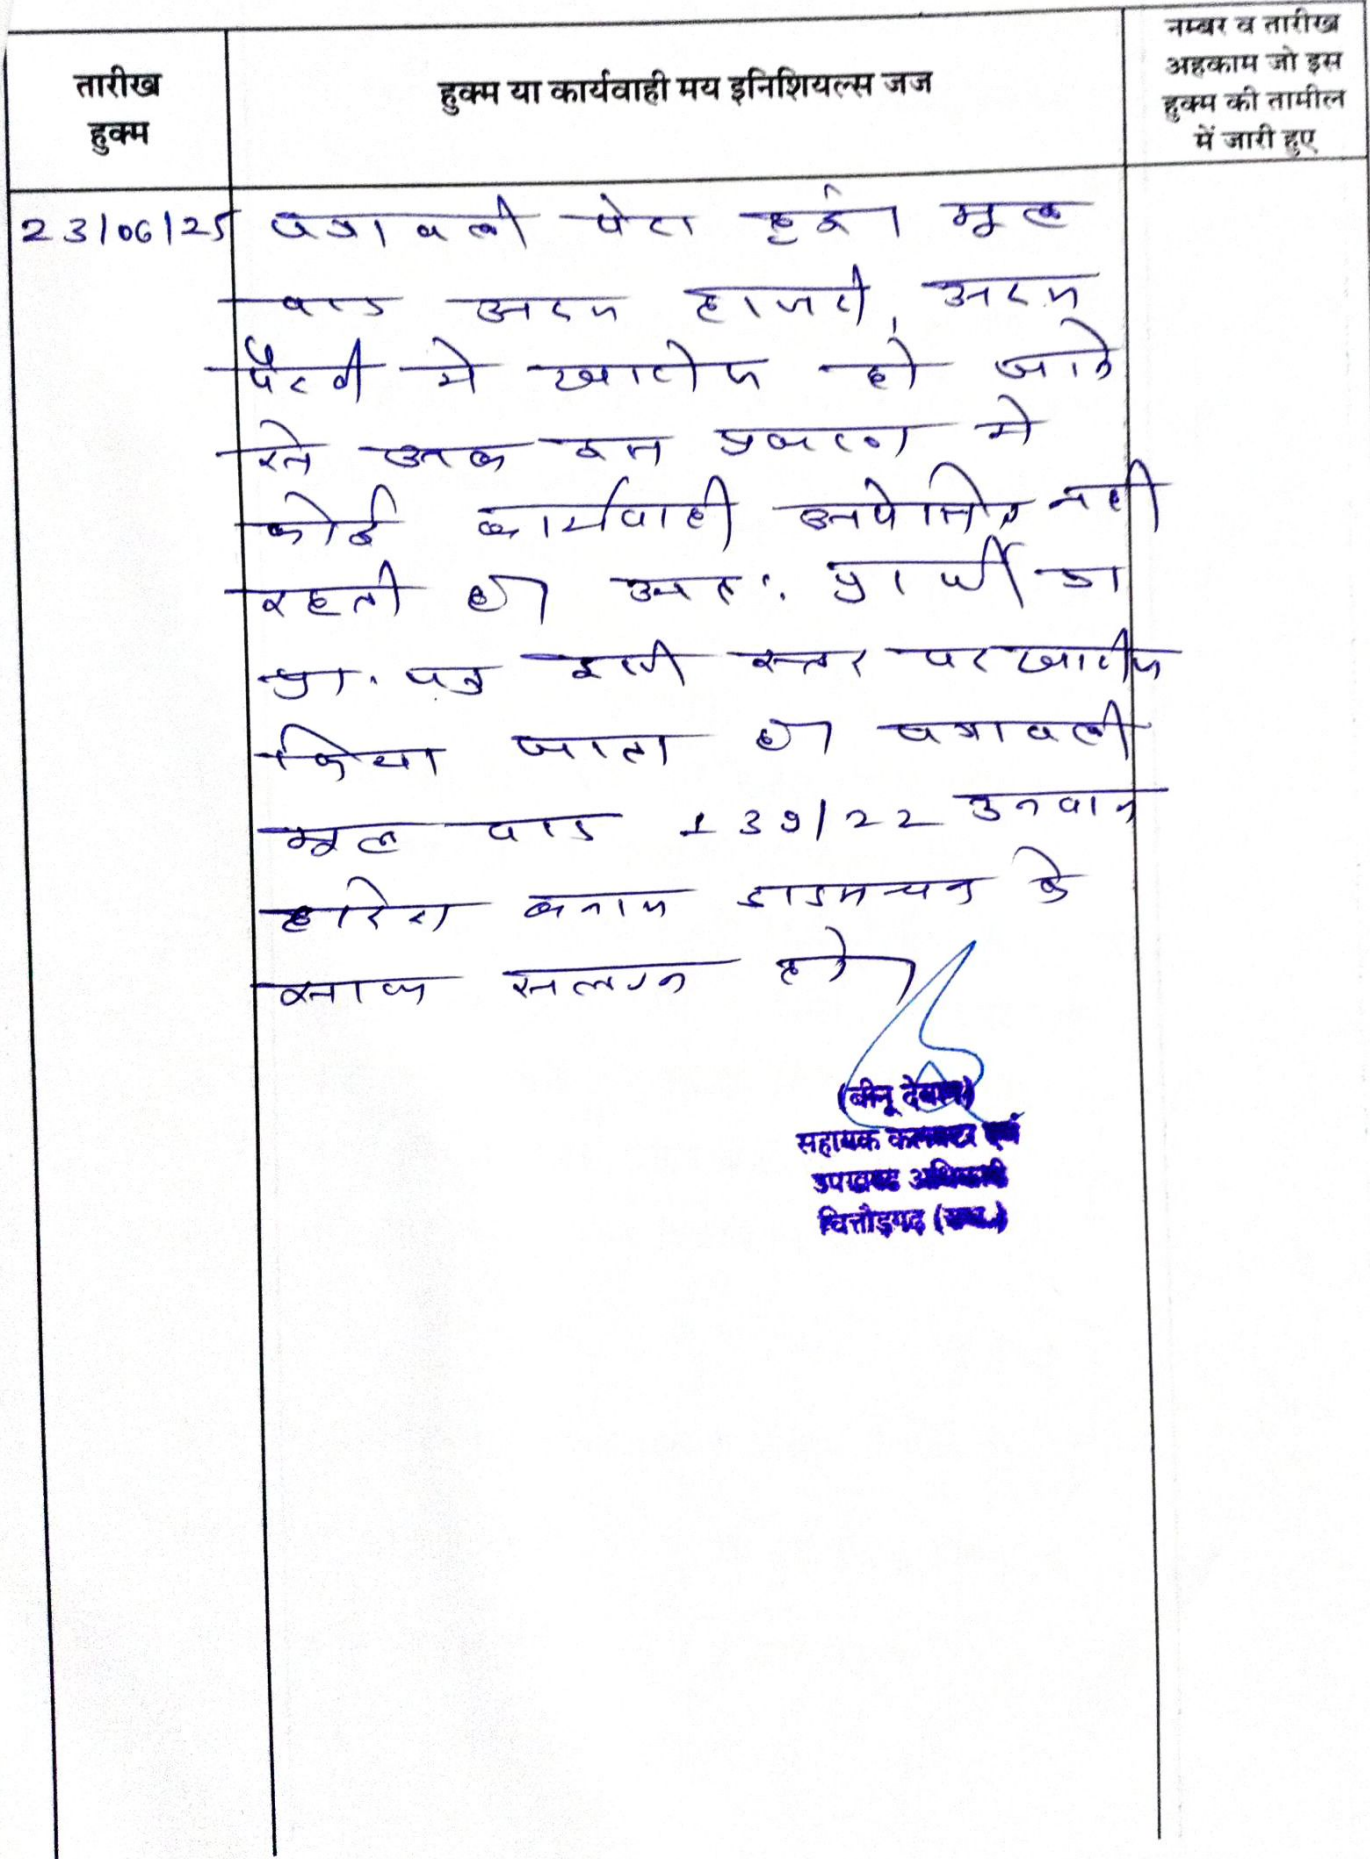 तारीख
हुक्म
हुक्म या कार्यवाही मय इनिशियल्स जज
नम्बर व तारीख
अहकाम जो इस
हुक्म की तामील
में जारी हुए
23/06/25 पत्रावली पेश हुई। मूल
वाद अदम हाजरी, अदम
पैरवी मे खारीज हो जाने
से अब इस प्रकरण मे
कोई कार्यवाही अपेक्षित नही
रहती है। अतः प्रार्थी का
प्रा. पत्र इसी स्तर पर खारीज
किया जाता है। पत्रावली
मूल वाद 139/22 उनवान
बनाम के
साथ सलग्न हो।
(बीनू देवल)
सहायक कलक्टर एवं
उपखण्ड अधिकारी
चित्तौड़गढ़ (राज.)